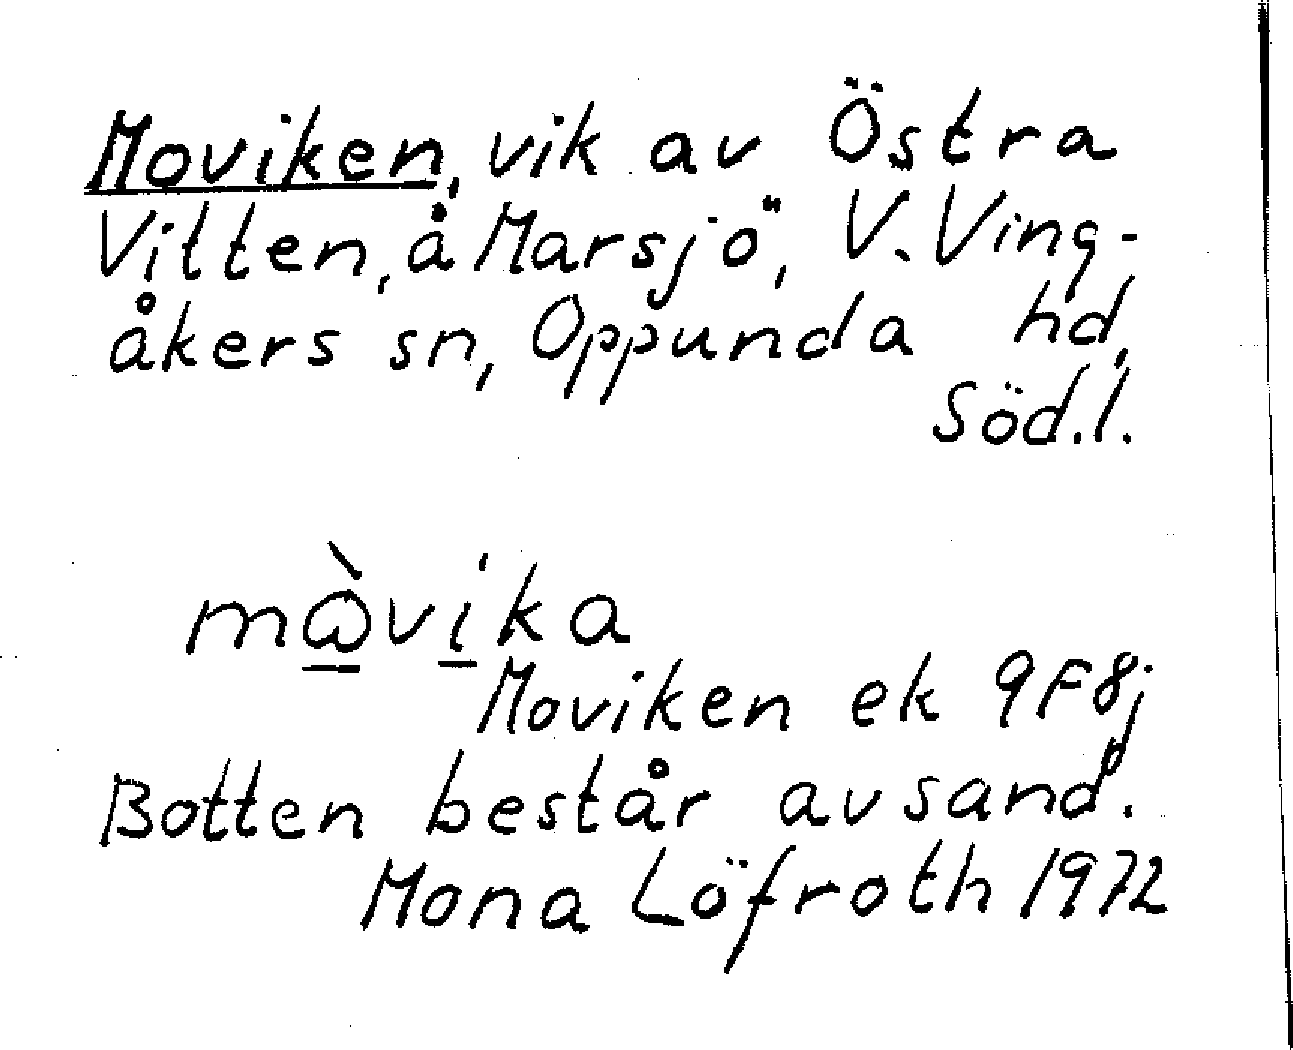 Moviken, vik av Östra
Vitten, å Marsjö, V. Ving-
åkers sn, Oppunda hd,
Söd.l.
mὼ̲vi̲ka
Moviken ek 9F8j
Botten består av sand.
Mona Löfroth 1972